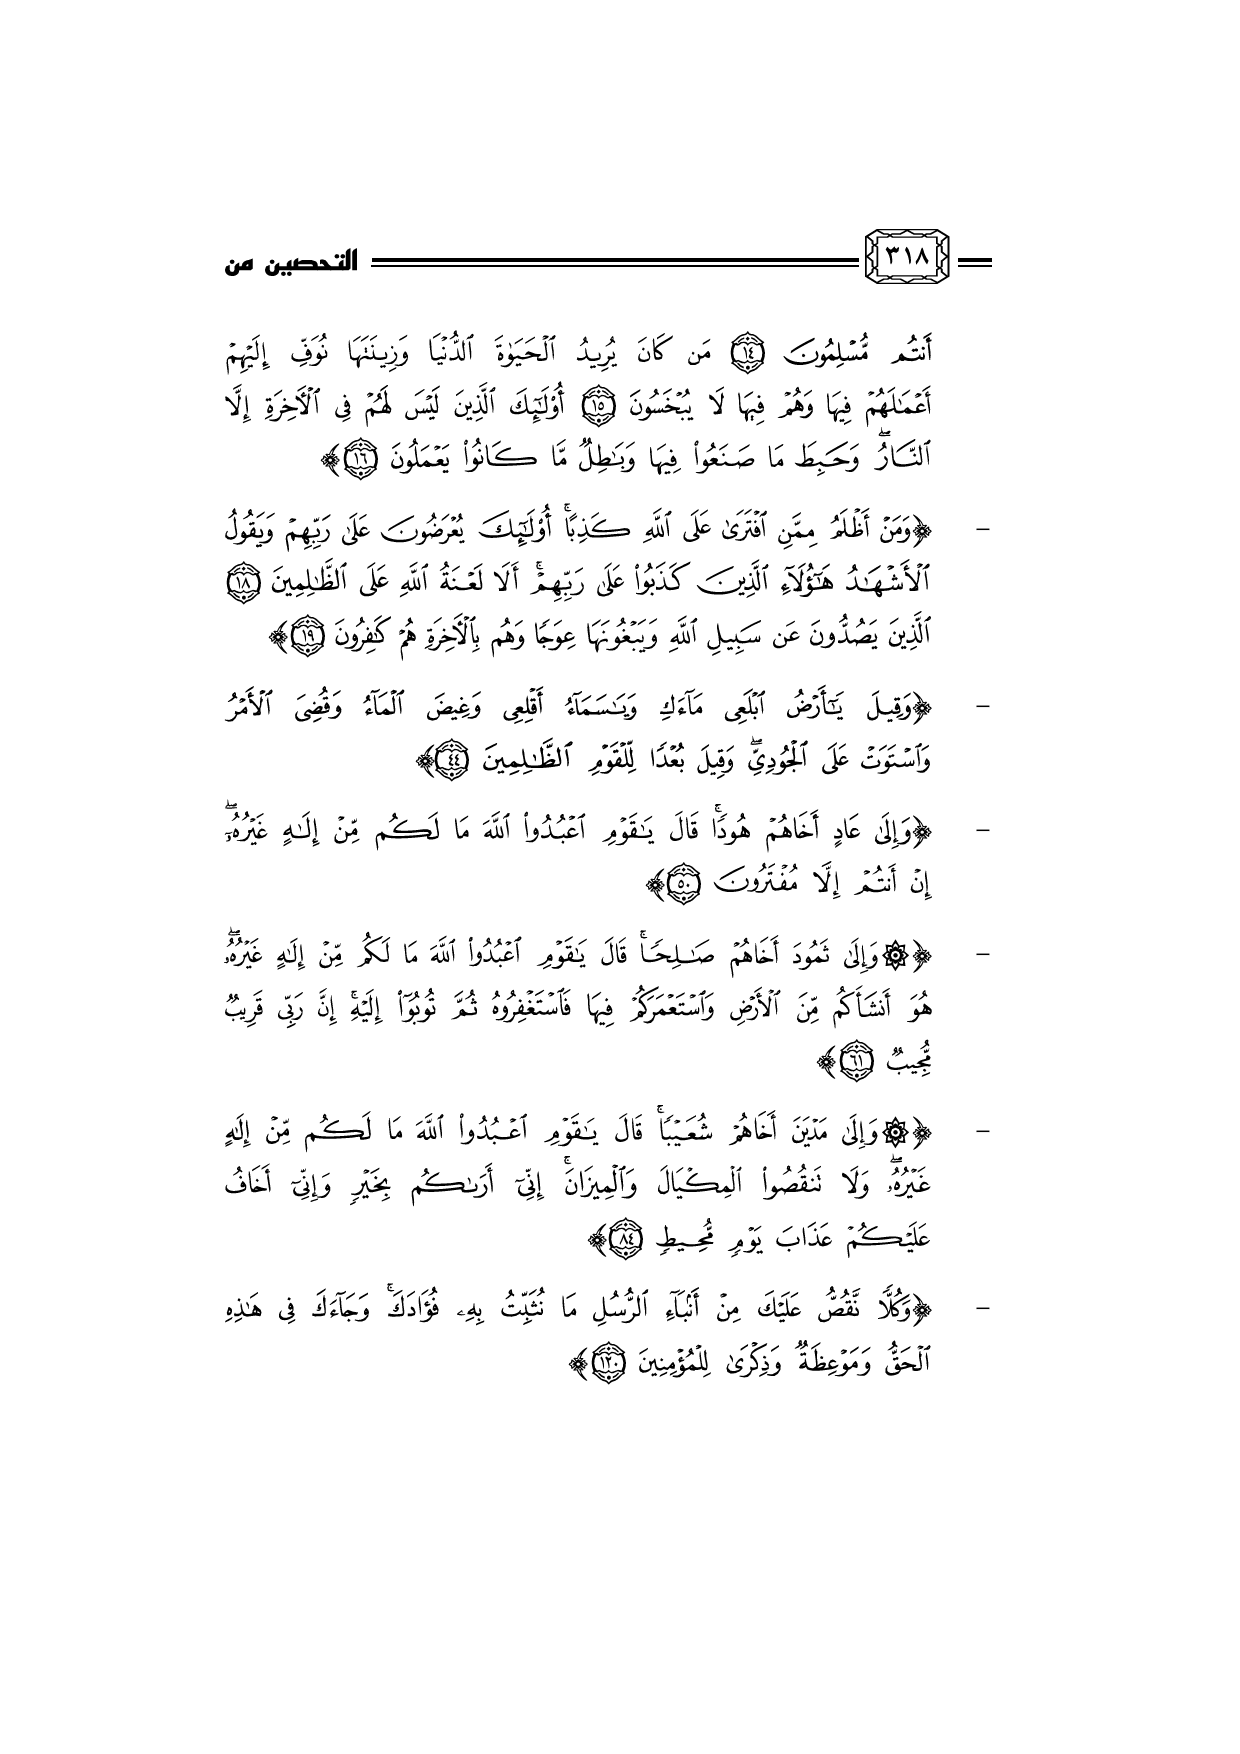 ٣١٨ التحصين من
أَنتُم مُّسۡلِمُونَ ١٤ مَن كَانَ يُرِيدُ ٱلۡحَيَوٰةَ ٱلدُّنۡيَا وَزِينَتَهَا نُوَفِّ إِلَيۡهِمۡ
أَعۡمَٰلَهُمۡ فِيهَا وَهُمۡ فِيهَا لَا يُبۡخَسُونَ ١٥ أُوْلَٰٓئِكَ ٱلَّذِينَ لَيۡسَ لَهُمۡ فِي ٱلۡأٓخِرَةِ إِلَّا
ٱلنَّارُۖ وَحَبِطَ مَا صَنَعُواْ فِيهَا وَبَٰطِلٞ مَّا كَانُواْ يَعۡمَلُونَ ١٦﴾
- ﴿وَمَنۡ أَظۡلَمُ مِمَّنِ ٱفۡتَرَىٰ عَلَى ٱللَّهِ كَذِبًاۚ أُوْلَٰٓئِكَ يُعۡرَضُونَ عَلَىٰ رَبِّهِمۡ وَيَقُولُ
ٱلۡأَشۡهَٰدُ هَٰٓؤُلَآءِ ٱلَّذِينَ كَذَبُواْ عَلَىٰ رَبِّهِمۡۚ أَلَا لَعۡنَةُ ٱللَّهِ عَلَى ٱلظَّٰلِمِينَ ١٨
ٱلَّذِينَ يَصُدُّونَ عَن سَبِيلِ ٱللَّهِ وَيَبۡغُونَهَا عِوَجٗا وَهُم بِٱلۡأٓخِرَةِ هُمۡ كَٰفِرُونَ ١٩﴾
- ﴿وَقِيلَ يَٰٓأَرۡضُ ٱبۡلَعِي مَآءَكِ وَيَٰسَمَآءُ أَقۡلِعِي وَغِيضَ ٱلۡمَآءُ وَقُضِيَ ٱلۡأَمۡرُ
وَٱسۡتَوَتۡ عَلَى ٱلۡجُودِيِّۖ وَقِيلَ بُعۡدٗا لِّلۡقَوۡمِ ٱلظَّٰلِمِينَ ٤٤﴾
- ﴿وَإِلَىٰ عَادٍ أَخَاهُمۡ هُودٗاۚ قَالَ يَٰقَوۡمِ ٱعۡبُدُواْ ٱللَّهَ مَا لَكُم مِّنۡ إِلَٰهٍ غَيۡرُهُۥٓۖ
إِنۡ أَنتُمۡ إِلَّا مُفۡتَرُونَ ٥٠﴾
- ﴿۞وَإِلَىٰ ثَمُودَ أَخَاهُمۡ صَٰلِحٗاۚ قَالَ يَٰقَوۡمِ ٱعۡبُدُواْ ٱللَّهَ مَا لَكُم مِّنۡ إِلَٰهٍ غَيۡرُهُۥۖ
هُوَ أَنشَأَكُم مِّنَ ٱلۡأَرۡضِ وَٱسۡتَعۡمَرَكُمۡ فِيهَا فَٱسۡتَغۡفِرُوهُ ثُمَّ تُوبُوٓاْ إِلَيۡهِۚ إِنَّ رَبِّي قَرِيبٞ
مُّجِيبٞ ٦١﴾
- ﴿۞وَإِلَىٰ مَدۡيَنَ أَخَاهُمۡ شُعَيۡبٗاۚ قَالَ يَٰقَوۡمِ ٱعۡبُدُواْ ٱللَّهَ مَا لَكُم مِّنۡ إِلَٰهٍ
غَيۡرُهُۥۖ وَلَا تَنقُصُواْ ٱلۡمِكۡيَالَ وَٱلۡمِيزَانَۚ إِنِّيٓ أَرَىٰكُم بِخَيۡرٖ وَإِنِّيٓ أَخَافُ
عَلَيۡكُمۡ عَذَابَ يَوۡمٖ مُّحِيطٖ ٨٤﴾
- ﴿وَكُلّٗا نَّقُصُّ عَلَيۡكَ مِنۡ أَنۢبَآءِ ٱلرُّسُلِ مَا نُثَبِّتُ بِهِۦ فُؤَادَكَۚ وَجَآءَكَ فِي هَٰذِهِ
ٱلۡحَقُّ وَمَوۡعِظَةٞ وَذِكۡرَىٰ لِلۡمُؤۡمِنِينَ ١٢٠﴾